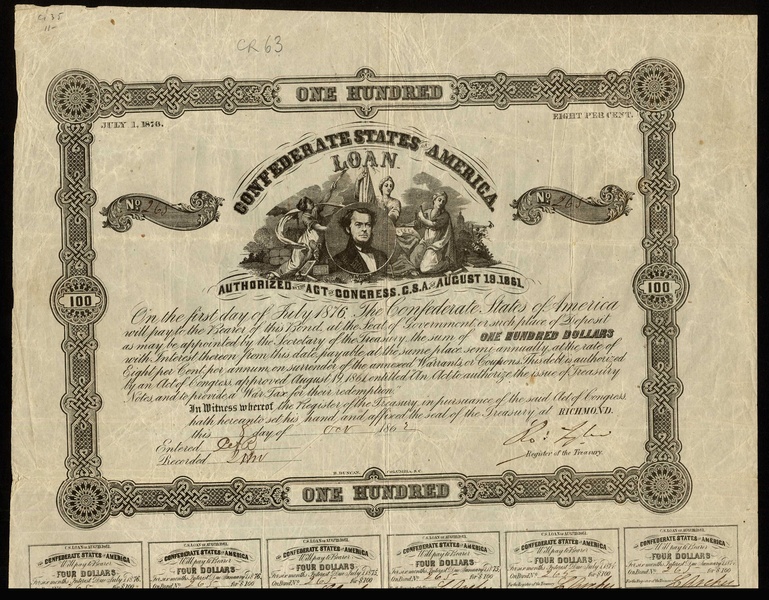 CR 63
ONE HUNDRED
JULY 1, 1876.
EIGHT PER CENT.
CONFEDERATE STATES OF AMERICA.
LOAN
No 265
No 265
AUTHORIZED BY THE ACT OF CONGRESS, C.S.A. OF AUGUST 19, 1861.
100
100
On the first day of July 1876, The Confederate States of America
will pay to the Bearer of this Bond, at the Seat of Government, or such place of Deposit
as may be appointed by the Secretary of the Treasury, the sum of ONE HUNDRED DOLLARS
with Interest thereon from this date, payable at the same place semi-annually, at the rate of
Eight per Cent. per annum, on surrender of the annexed Warrants or Coupons. This debt is authorized
by an Act of Congress, approved August 19, 1861, entitled "An Act to authorize the issue of Treasury
Notes, and to provide a War Tax for their redemption."
In Witness whereof, the Register of the Treasury, in pursuance of the said Act of Congress,
hath hereunto set his hand, and affixed the seal of the Treasury, at RICHMOND.
this 8 day of Oct 1862
Ro: Tyler
Register of the Treasury.
Entered
Recorded
B. DUNCAN, COLUMBIA, S.C.
ONE HUNDRED
CONFEDERATE STATES OF AMERICA
Will pay to Bearer
FOUR DOLLARS
CONFEDERATE STATES OF AMERICA
Will pay to Bearer
FOUR DOLLARS
CONFEDERATE STATES OF AMERICA
Will pay to Bearer
FOUR DOLLARS
CONFEDERATE STATES OF AMERICA
Will pay to Bearer
FOUR DOLLARS
CONFEDERATE STATES OF AMERICA
Will pay to Bearer
FOUR DOLLARS
CONFEDERATE STATES OF AMERICA
Will pay to Bearer
FOUR DOLLARS